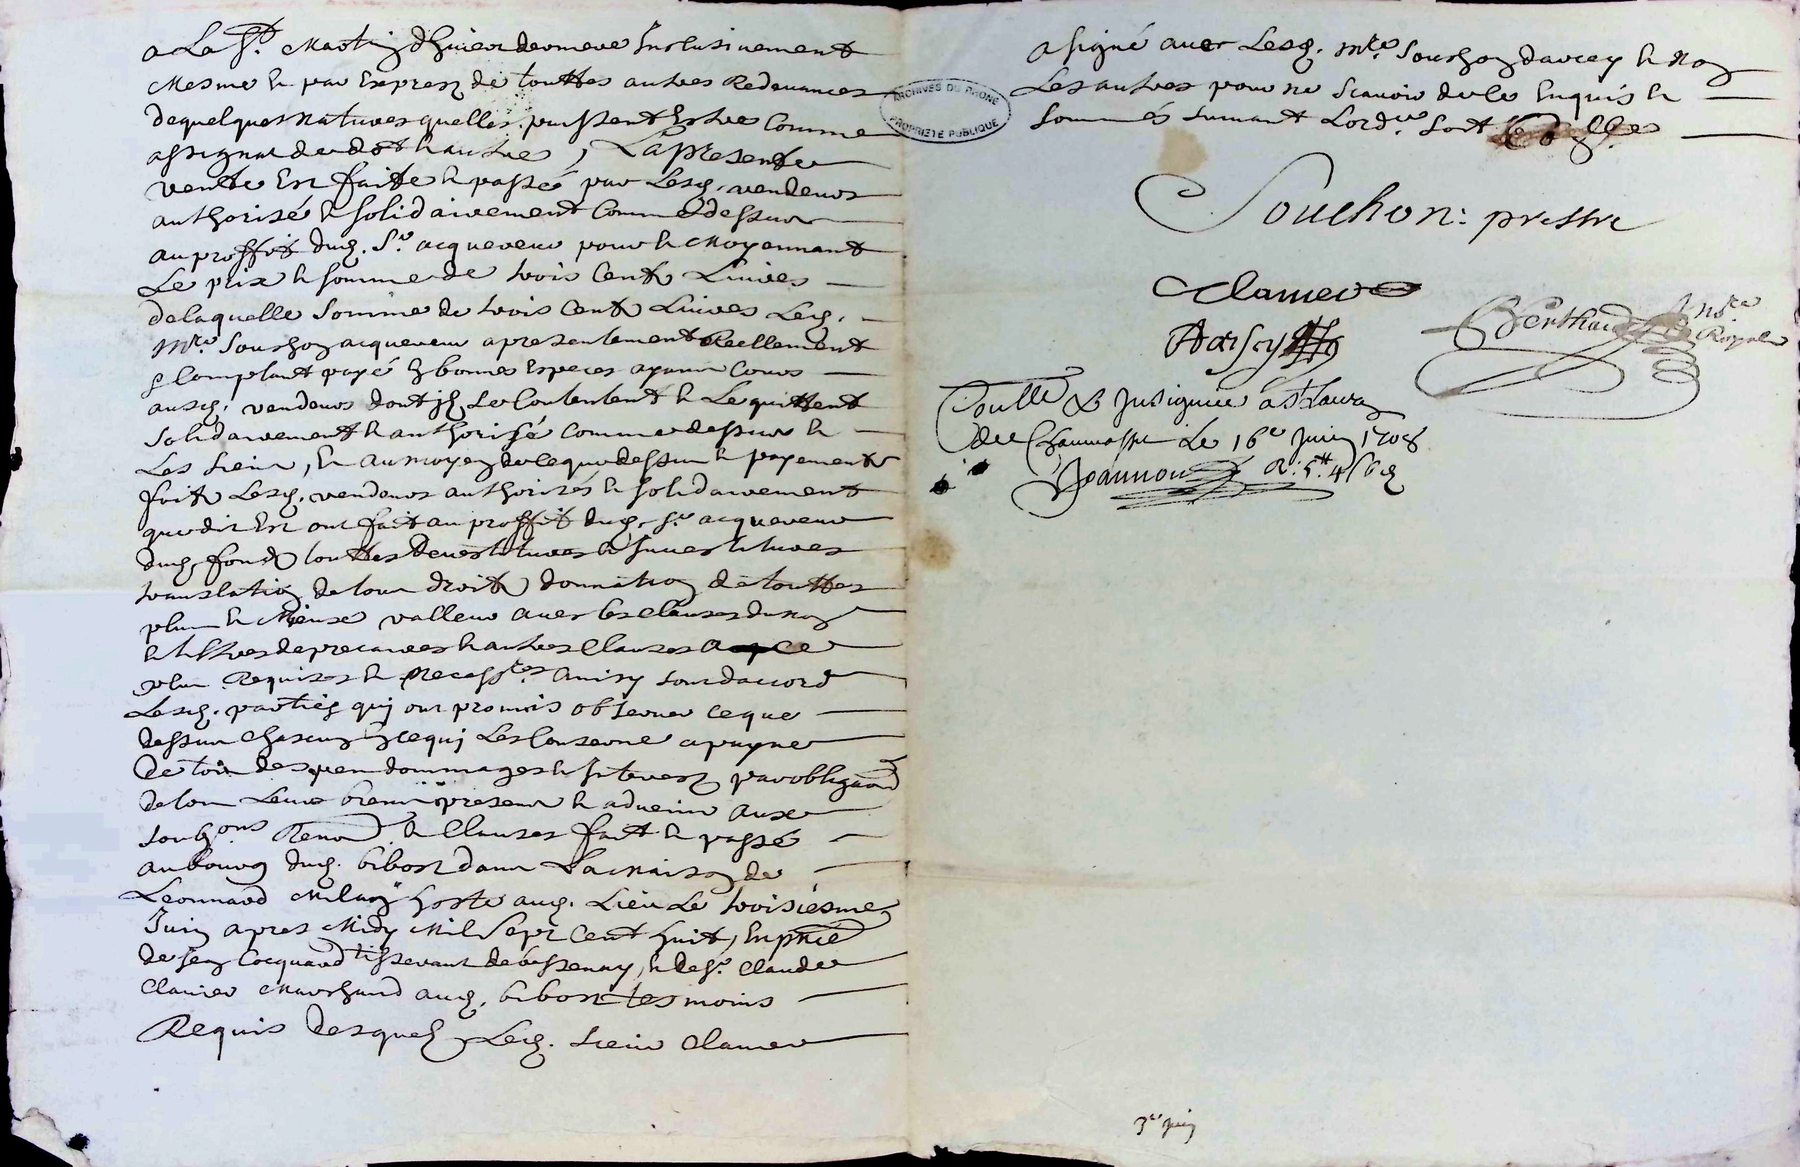 a La St Martin d'hiver derniere Inclusivement
Mesme et par Exprez de touttes autres Redevances
de quelques Natures quelles puissent Estre Comme
assignat de dot et autres, La presente
vente Est faitte et passée par Lesd. vendeurs
authorisé et solidairement Comme dessus
au proffit dud. Sr acquereur pour et Moyennant
Le prix et somme de trois Cents Livres
de laquelle Somme de trois Cents Livres Led.
Mre Souchon acquereur a presentement Reellement
et Comptant payé en bonnes Especes ayant Cours
ausd. vendeurs dont ils Se Contentent et Le quittent
Solidairement et authorisé Comme dessus et
Les Siens, et au moyen de ce que dessus et payement
fait Lesd. vendeurs authorisés et solidairement
que dit Est ont fait au proffit dud. Sr acquereur
dud. fonds touttes Devestitures et Investitures
translation de tous droits donnation de touttes
plus et Mieux valleur avec les clauses du Nom
et tiltres de precaires et autres Clauses a ce
plus Requises et Necessres Ainsy sont d'accord
Lesd. parties qui ont promis observer ce que
dessus chascun en ce qui Les Conserne a payne
De tous despens dommages et Interestz par obligaon
de tous Leurs biens presens et advenir aux
soubons Renon et Clauses fait et passé
au bourg dud. bibost dans La Maison de
Leonnard Milan hoste aud. Lieu Le troisiesme
Juin apres Midy Mil Sept Cent huit, En pñce
de Jean Cocquard tisserant de bessenay, et de Sr Claude
Clamer Marchand aud. bibost tesmoins
Requis Desquels Led. Sieur Clamer
a signé avec Lesd. Mre Souchon darcy et Non
Les autres pour ne Scavoir de ce Enquis et
Sommés suivant Lordce Soit
ARCHIVES DU RHONE
PROPRIÉTÉ PUBLIQUE
Souchon: prestre
Clamer
Darcy
Berthaud Nre
Royal
Coullé & Insigniue a St Laurant
de Chamousset Le 16e Juin 1708
Jeannon
3e juin